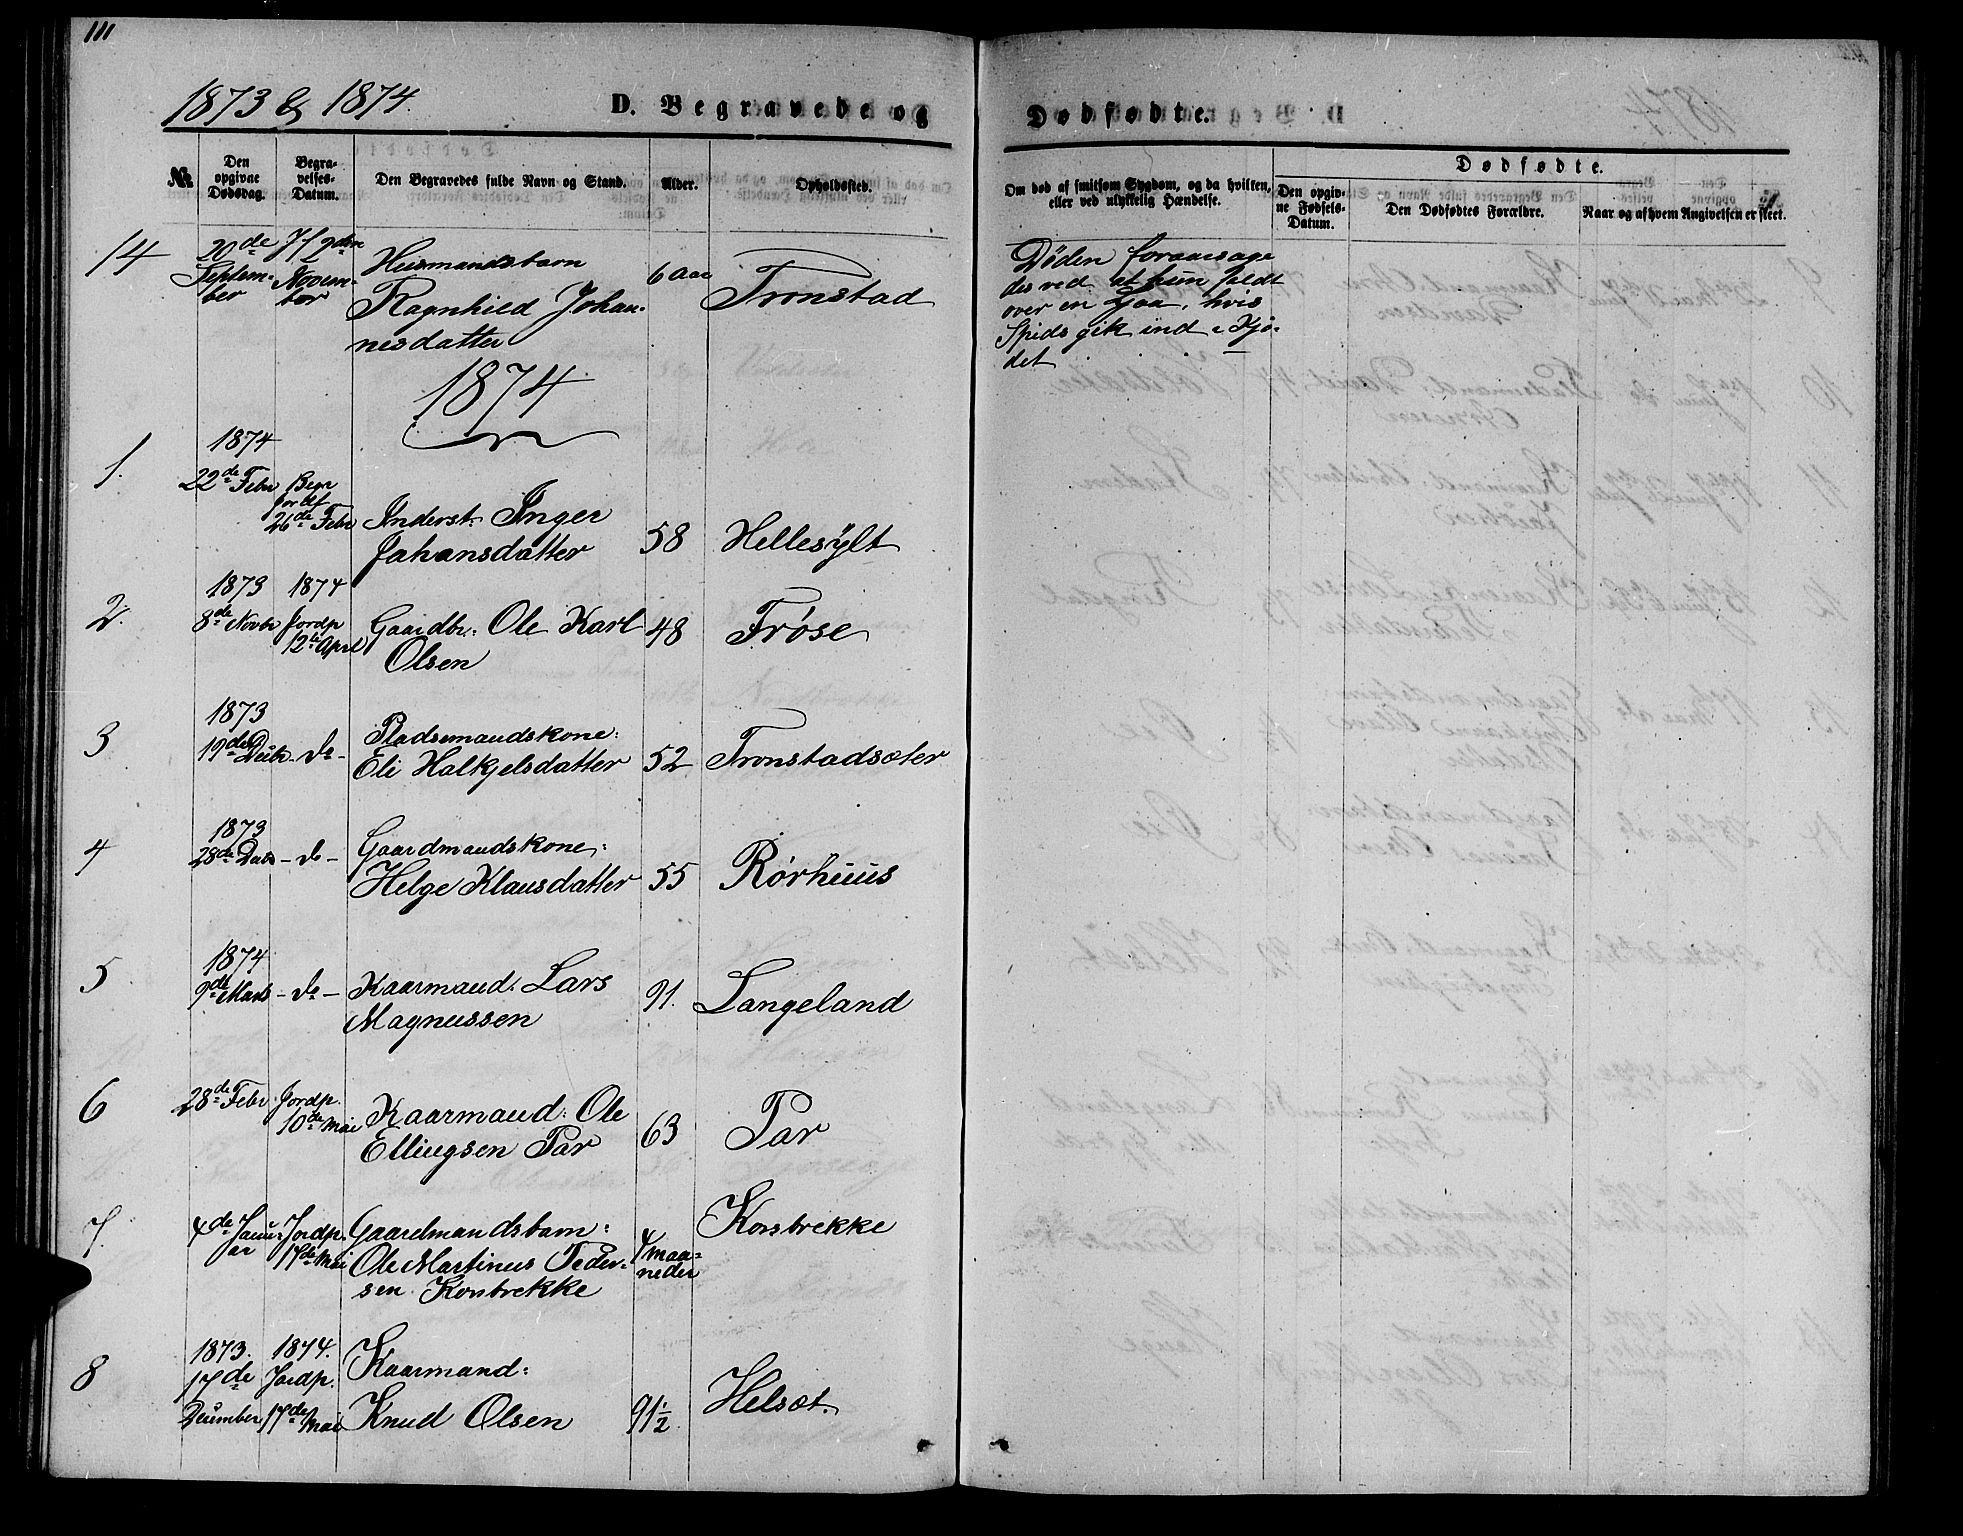 111
1873 & 1874.
D. Begravede og
Dødfødte.
№
Den opgivne Dødsdag.
Begravelses-Datum.
Den Begravedes fulde Navn og Stand.
Alder.
Opholdssted.
Om død af smitsom Sygdom, og da hvilken, eller ved ulykkelig Hændelse.
Dødfødte.
Den opgivne Fødsels-Datum.
Den Dødfødtes Forældre.
Naar og af hvem Angivelsen er skeet.
14
20de Septem-
ber
Jf 2den
Novem-
ber
Husmandsbarn
Ragnhild Johan-
nesdatter
6 Aar
Tronstad
Døden foraarsage
des ved at hun faldt
over en Ljaa, hvis
Spids gik ind i Kjø-
det
1874
1.
1874
22de Febr
Begr
Jordf
26de Febr
Inderst: Inger
Johansdatter
58
Hellesylt
2.
1873
8de Novbr
1874
Jordp
12te April
Gaardbr: Ole Karl
Olsen
48
Frøse
3
1873
19de Decbr
- do -
Pladsmandskone:
Eli Halkjelsdatter
52
Tronstadsæter
4
1873
28de Decbr
- do -
Gaardmandskone:
Helge Klausdatter
55
Rørhuus
5
1874
9de Marts
- do -
Kaarmand: Lars
Magnussen
91.
Langeland
6
28de Febr
Jordp.
10de Mai
Kaarmand: Ole
Ellingsen Tar
63
Tar
7.
4de Janu-
ar
Jordp.
17de Mai
Gaardmandsbarn:
Ole Martinus Peder-
sen Korsbrekke
4 maa-
neder
Korsbrekke
8
1873.
17de
December
1874.
Jordp.
17de Mai
Kaarmand:
Knud Olsen
91½
Helsæt.